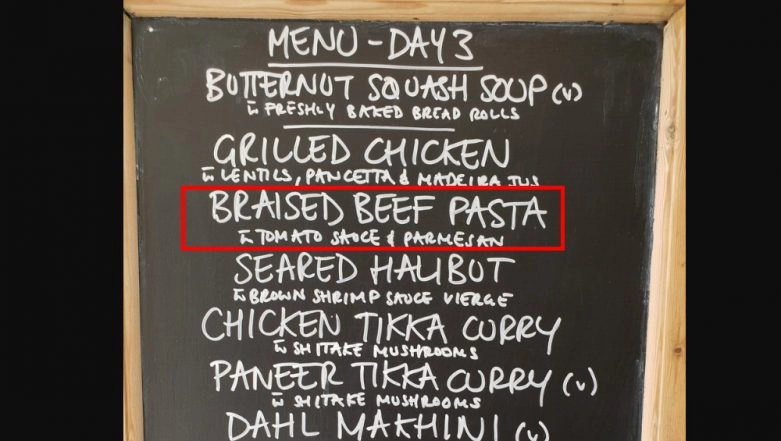 MENU - DAY 3
BUTTERNUT SQUASH SOUP (V)
W FRESHLY BAKED BREAD ROLLS
GRILLED CHICKEN
W LENTILS, PANCETTA & MADEIRA JUS
BRAISED BEEF PASTA
W TOMATO SAUCE & PARMESAN
SEARED HALIBUT
W BROWN SHRIMP SAUCE VIERGE
CHICKEN TIKKA CURRY
W SHITAKE MUSHROOMS
PANEER TIKKA CURRY (V)
W SHITAKE MUSHROOMS
DAHL MAKHINI (V)